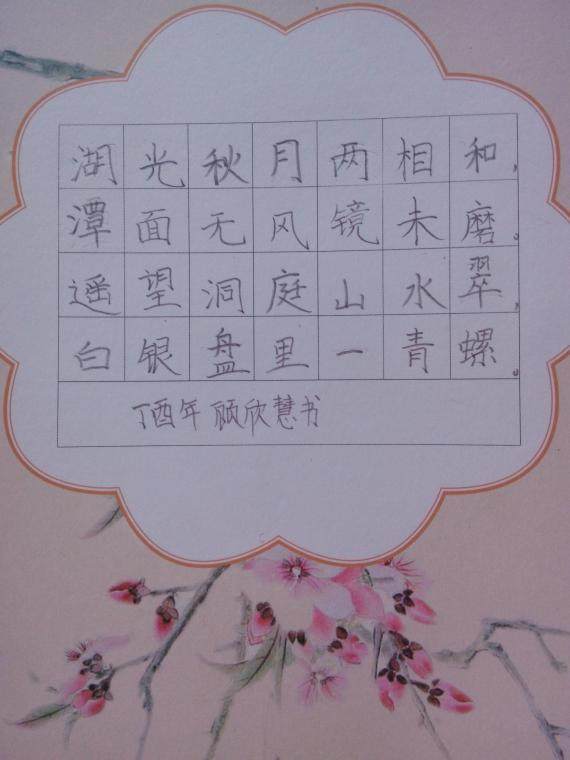 湖光秋月两相和，
潭面无风镜未磨。
遥望洞庭山水翠，
白银盘里一青螺。
丁酉年 顾欣慧书